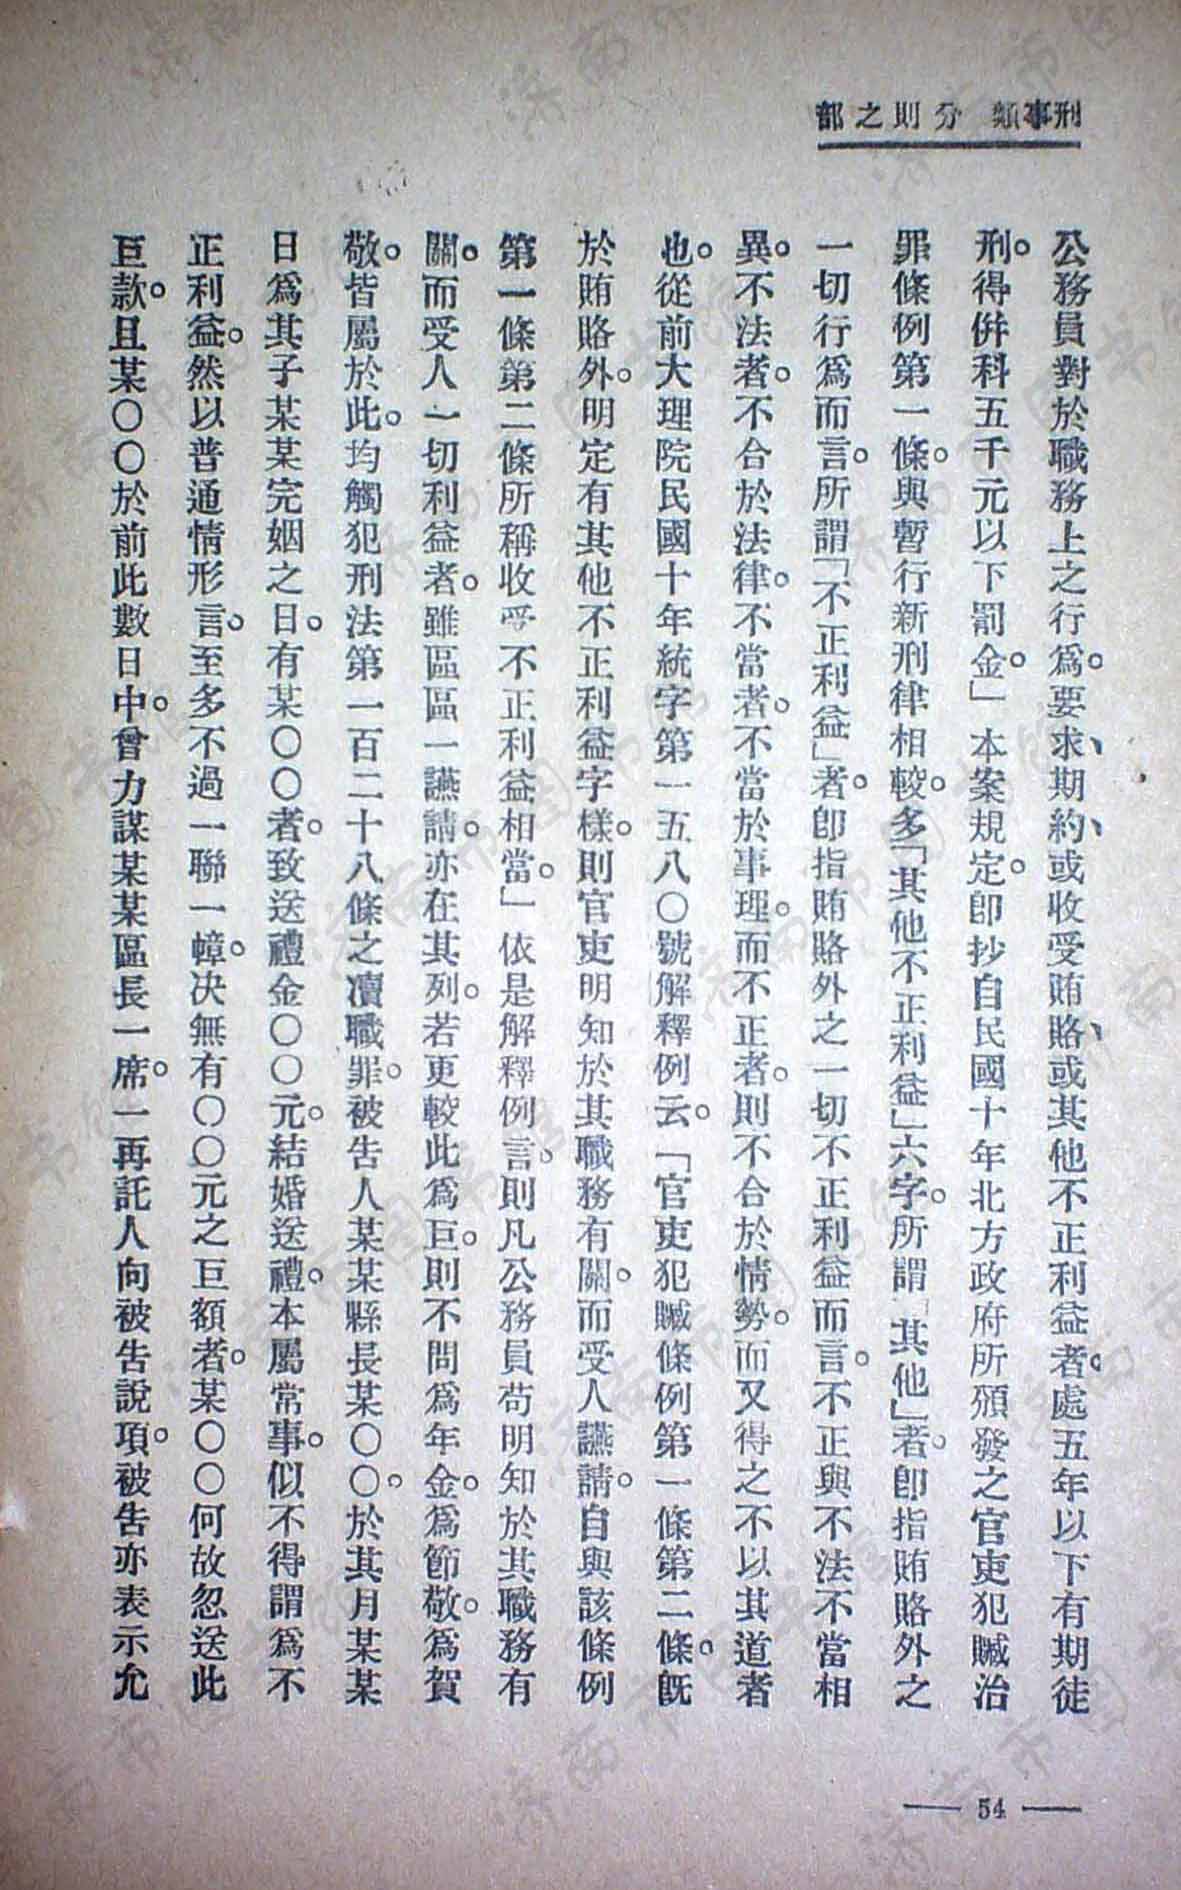 刑事類 分則之部
公務員對於職務上之行爲。要求、期約、或收受賄賂、或其他不正利益者。處五年以下有期徒
刑。得併科五千元以下罰金。」本案規定。卽抄自民國十年北方政府所頒發之官吏犯贓治
罪條例第一條。與暫行新刑律相較。多「其他不正利益」六字。所謂「其他」者。卽指賄賂外之
一切行爲而言。所謂「不正利益」者。卽指賄賂外之一切不正利益而言。不正與不法不當相
異。不法者。不合於法律。不當者。不當於事理。而不正者。則不合於情勢。而又得之不以其道者
也。從前大理院民國十年統字第一五八〇號解釋例云。「官吏犯贓條例第一條第二條。旣
於賄賂外。明定有其他不正利益字樣。則官吏明知於其職務有關。而受人讌請。自與該條例
第一條第二條所稱收受不正利益相當。」依是解釋例言。則凡公務員苟明知於其職務有
關。而受人一切利益者。雖區區一讌請。亦在其列。若更較此爲巨。則不問爲年金。爲節敬。爲賀
敬。皆屬於此。均觸犯刑法第一百二十八條之瀆職罪。被告人某某縣長某〇〇。於其月某某
日爲其子某某完姻之日。有某〇〇者。致送禮金〇〇元。結婚送禮。本屬常事。似不得謂爲不
正利益。然以普通情形言。至多不過一聯一幛。决無有〇〇元之巨額者。某〇〇何故忽送此
巨款。且某〇〇於前此數日中。曾力謀某某區長一席。一再託人向被告說項。被告亦表示允
— 54 —
济南市图书馆